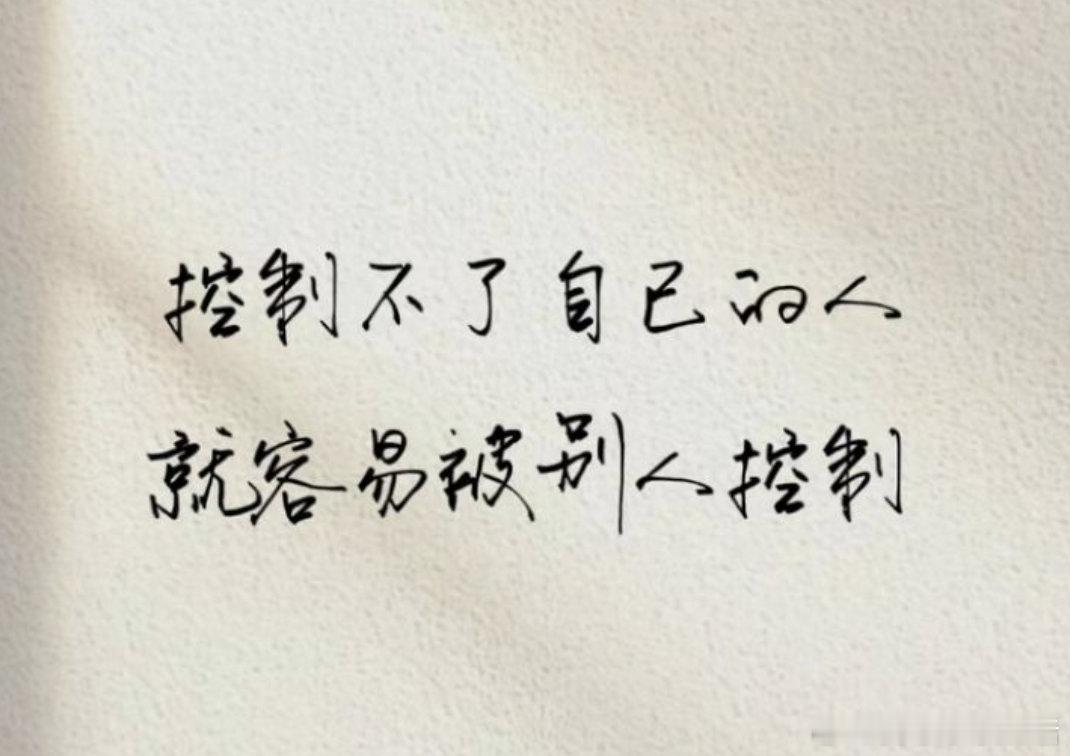 控制不了自己的人
就容易被别人控制